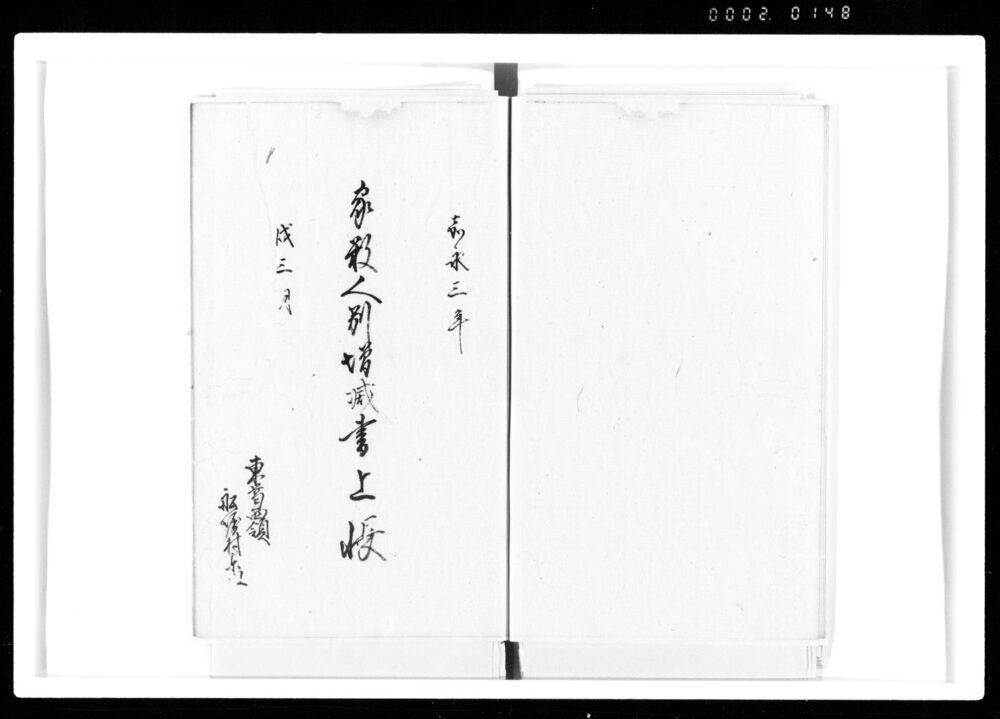 0002. 0148
嘉永三年
家数人別増減書上帳
戌三月
東葛西領
船堀村